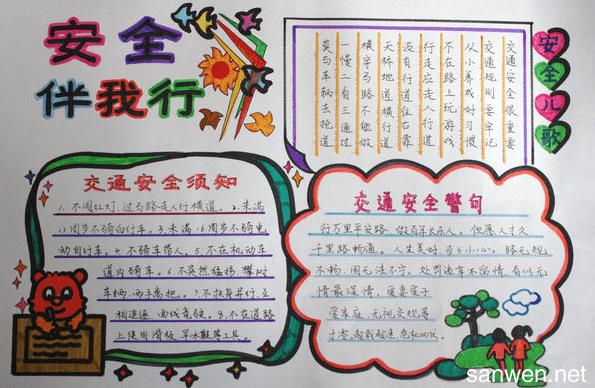 安全
伴我行
安全儿歌
交通安全很重要
交通规则要牢记
从小养成好习惯
不在路上玩游戏
行走应走人行道
没有行道住右靠
天桥地道横行道
横穿马路不能做
一慢二看三通过
莫与车辆去抢道
交通安全须知
1、不闯红灯,过马路走人行横道。2、未满
12周岁不骑自行车。3、未满16周岁不骑电
动自行车。4、不骑车带人。5、不在机动车
道内骑车。6、不突然猛拐、攀附
车辆、双手离把。7、不扶身并行、互
相追逐、曲线竞驶。8、不在道路
上使用滑板、旱冰鞋等工具。
交通安全警句
行万里平安路,做百年长在人。但愿人才久
千里路畅通。人生美好,步步小心。路无规
不畅,国无法不宁。处罚违章不留情,看似无
情最深情。爱妻爱子
爱家庭,无视交规等
于零,超载超速,危机四伏。
sanwen.net